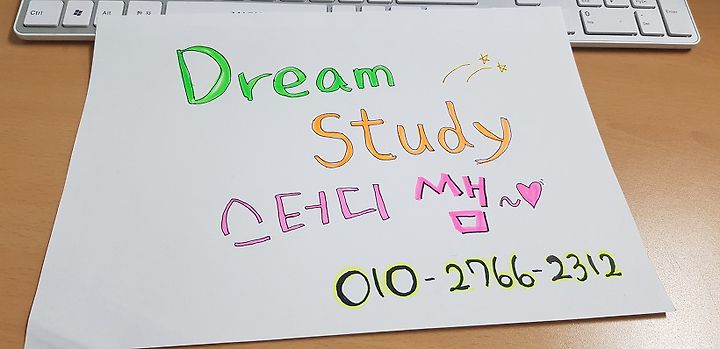 Ctrl Alt 한자 Ins Del Enter
Dream
Study
스터디 쌤~♡
010-2766-2312